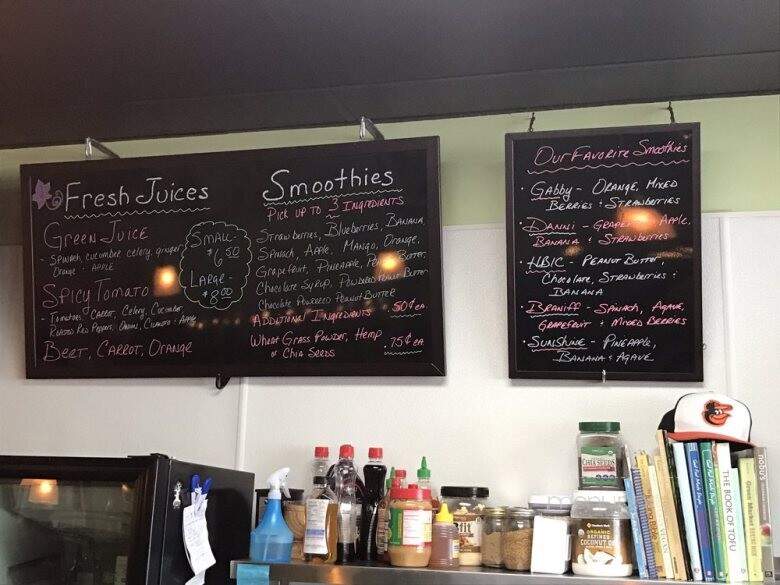 Fresh Juices
Green Juice
- Spinach, cucumber, celery, ginger
Orange + Apple
Spicy Tomato
- Tomatoes, Carrot, Celery, Cucumber
Roasted Red Peppers, Onions, Cilantro + Apple
Beet, Carrot, Orange
Small-
$6.50
Large-
$8.00
Smoothies
Pick up to 3 Ingredients
Strawberries, Blueberries, Banana,
Spinach, Apple, Mango, Orange,
Grapefruit, Pineapple, Butter,
Chocolate Syrup, Powdered Peanut Butter
Chocolate Powdered Peanut Butter
Additional Ingredients .50¢ ea.
Wheat Grass Powder, Hemp
or Chia Seeds .75¢ ea
Our Favorite Smoothies
· Gabby - Orange, Mixed
Berries + Strawberries
· Danni - Grape Apple,
Banana + Strawberries
· HBIC - Peanut Butter,
Chocolate, Strawberries +
Banana
· Braniff - Spinach, Agave,
Grapefruit + Mixed Berries
· Sunshine - Pineapple,
Banana + Agave
CHIA SEEDS
ORGANIC
REFINED
COCONUT OIL
THE BOOK OF TOFU
nobu's